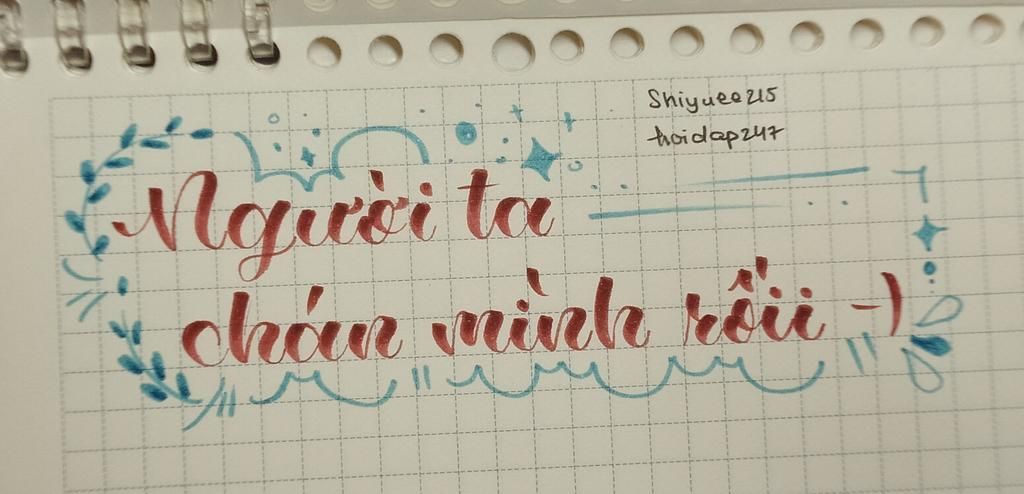 Shiyuee215
hoidap247
Người ta
chán mình rồii -)